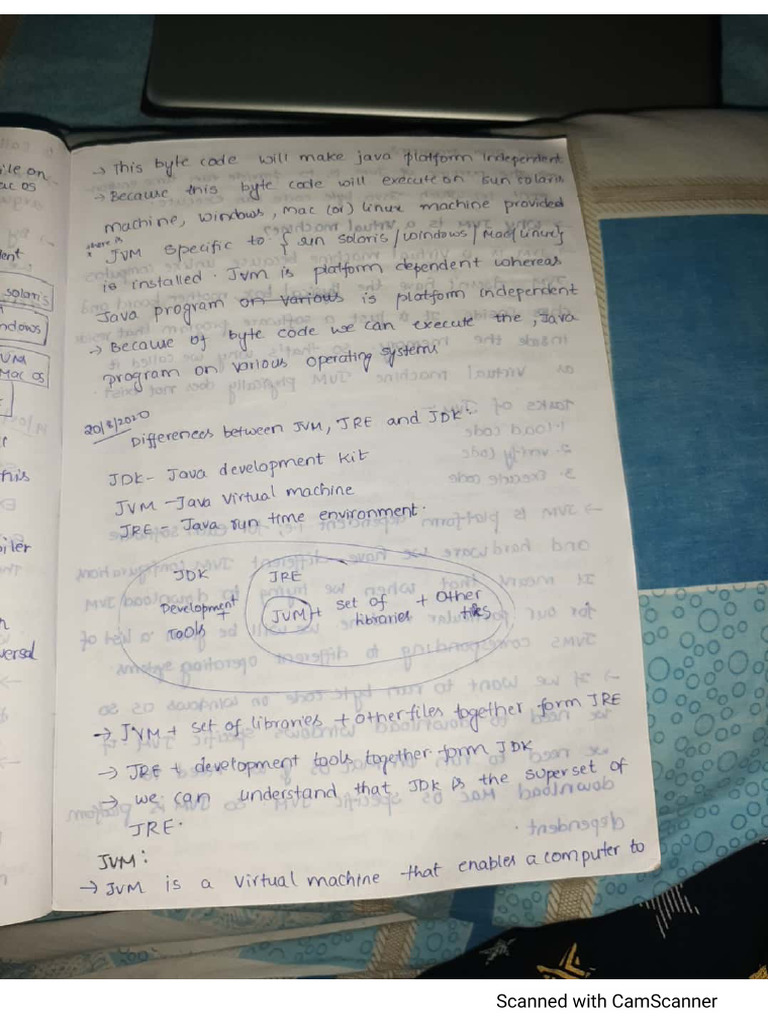 ile on
ac os
dent
solaris
ndows
JVM
Mac OS
his
piler
versal
→ This byte code will make java platform independent
→ Because this byte code will execute on sun solaris
machine, windows, mac (or) linux machine provided
there is
* JVM specific to { sun solaris/windows/Mac/Linux}
is installed. Jvm is platform dependent whereas
Java program on various is platform independent
→ Because of byte code we can execute the, Java
program on various operating systems
20/8/2020
Differences between JVM, JRE and JDK:
JDK - Java development kit
JVM - Java virtual machine
JRE - Java run time environment.
JDK JRE
Development + JVM + set of + other
Tools libraries files
→ JVM + set of libraries + other files together form JRE
→ JRE + development tools together form JDK
→ we can understand that JDK is the superset of
JRE.
JVM:
→ JVM is a virtual machine that enables a computer to
Scanned with CamScanner